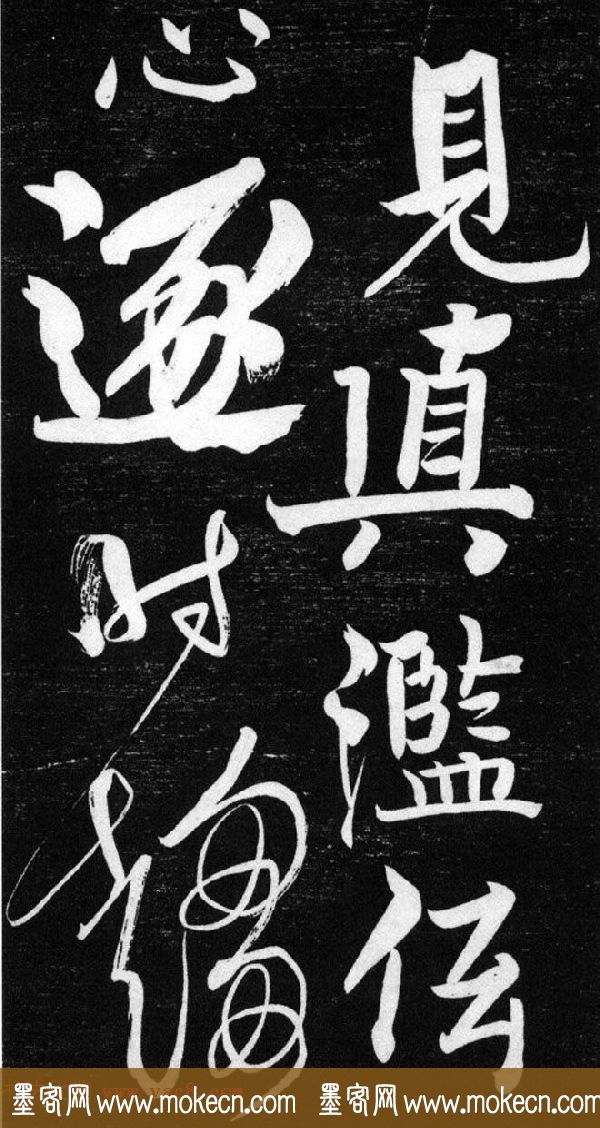 見真濫
心逐时趨
墨客网 www.mokecn.com 墨客网 www.mokecn.com